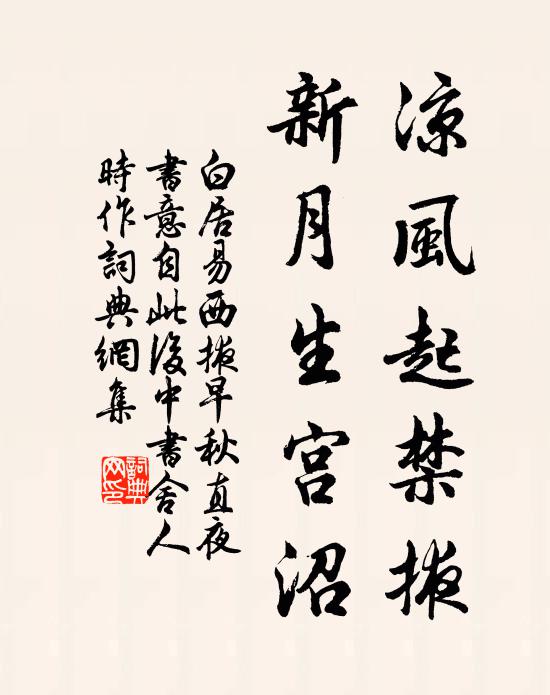 凉風起禁掖
新月生宮沼
白居易西掖早秋直夜
書意自此後中書舍人
時作詞典網集
詞典
网印